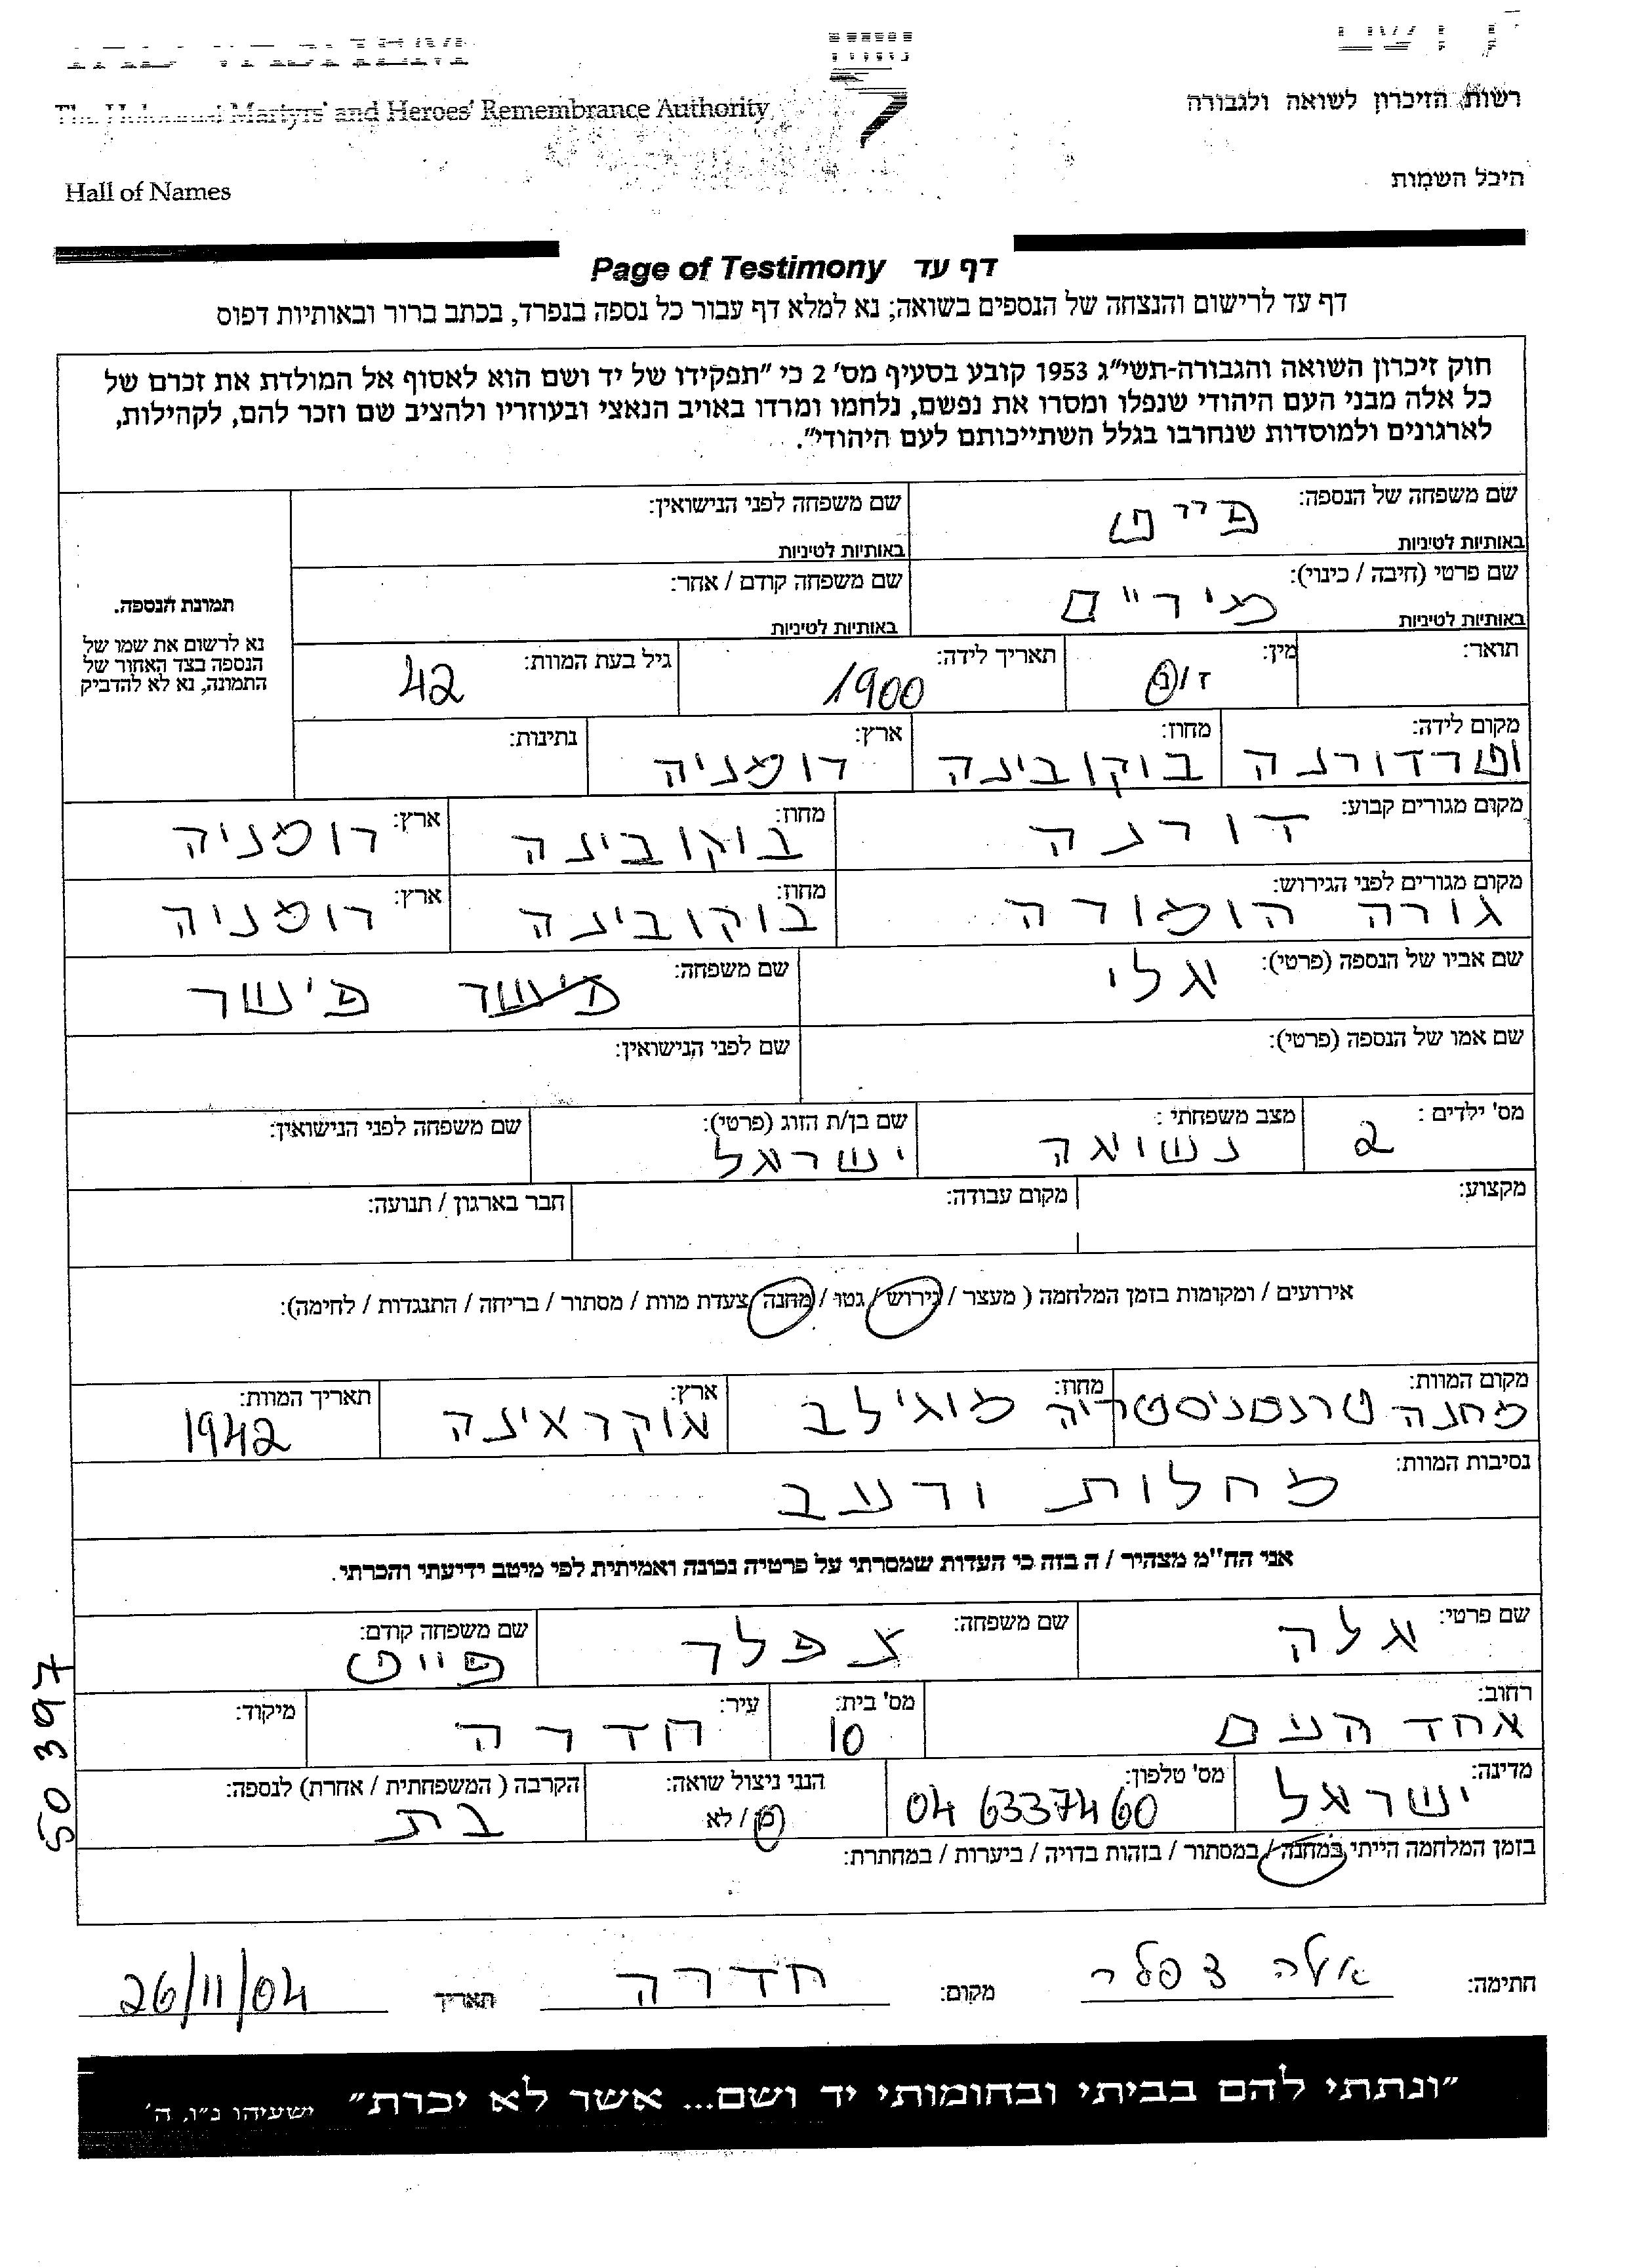 YAD VASHEM
יד ושם
The Holocaust Martyrs' and Heroes' Remembrance Authority
רשות הזיכרון לשואה ולגבורה
Hall of Names
היכל השמות
Page of Testimony דף עד
דף עד לרישום והנצחה של הנספים בשואה; נא למלא דף עבור כל נספה בנפרד, בכתב ברור ובאותיות דפוס
חוק זיכרון השואה והגבורה-תשי״ג 1953 קובע בסעיף מס' 2 כי ״תפקידו של יד ושם הוא לאסוף אל המולדת את זכרם של
כל אלה מבני העם היהודי שנפלו ומסרו את נפשם, נלחמו ומרדו באויב הנאצי ובעוזריו ולהציב שם וזכר להם, לקהילות,
לארגונים ולמוסדות שנחרבו בגלל השתייכותם לעם היהודי״.
שם משפחה של הנספה: פייט
באותיות לטיניות
שם משפחה לפני הנישואין:
באותיות לטיניות
תמונת הנספה.
נא לרשום את שמו של
הנספה בצד האחור של
התמונה, נא לא להדביק
שם פרטי (חיבה / כינוי): מירים
באותיות לטיניות
שם משפחה קודם / אחר:
באותיות לטיניות
תואר:
מין: ז / נ
תאריך לידה: 1900
גיל בעת המוות: 42
מקום לידה: וטרדורנה
מחוז: בוקובינה
ארץ: רומניה
נתינות:
מקום מגורים קבוע: דורנה
מחוז: בוקובינה
ארץ: רומניה
מקום מגורים לפני הגירוש: גורה הומורה
מחוז: בוקובינה
ארץ: רומניה
שם אביו של הנספה (פרטי): אלי
שם משפחה: פישר פישר
שם אמו של הנספה (פרטי):
שם לפני הנישואין:
מס' ילדים: 2
מצב משפחתי: נשואה
שם בן/ת הזוג (פרטי): ישראל
שם משפחה לפני הנישואין:
מקצוע:
מקום עבודה:
חבר בארגון / תנועה:
אירועים / ומקומות בזמן המלחמה ( מעצר / גירוש / גטו / מחנה / צעדת מוות / מסתור / בריחה / התנגדות / לחימה):
מקום המוות: מחנה טרנסניסטריה
מחוז: מוגילב
ארץ: אוקראינה
תאריך המוות: 1942
נסיבות המוות: מחלות ורעב
אני הח״מ מצהיר / ה בזה כי העדות שמסרתי על פרטיה נכונה ואמיתית לפי מיטב ידיעתי והכרתי.
שם פרטי: אלה
שם משפחה: צפלר
שם משפחה קודם: פייט
רחוב: אחד העם
מס' בית: 10
עיר: חדרה
מיקוד:
מדינה: ישראל
מס' טלפון: 04 6337460
הנני ניצול שואה: כן / לא
הקרבה ( המשפחתית / אחרת) לנספה: בת
בזמן המלחמה הייתי במחנה / במסתור / בזהות בדויה / ביערות / במחתרת:
50397
חתימה: אלה צפלר
מקום: חדרה
תאריך 26/11/04
״ונתתי להם בביתי ובחומותי יד ושם... אשר לא יכרת״ ישעיהו נ״ו, ה'